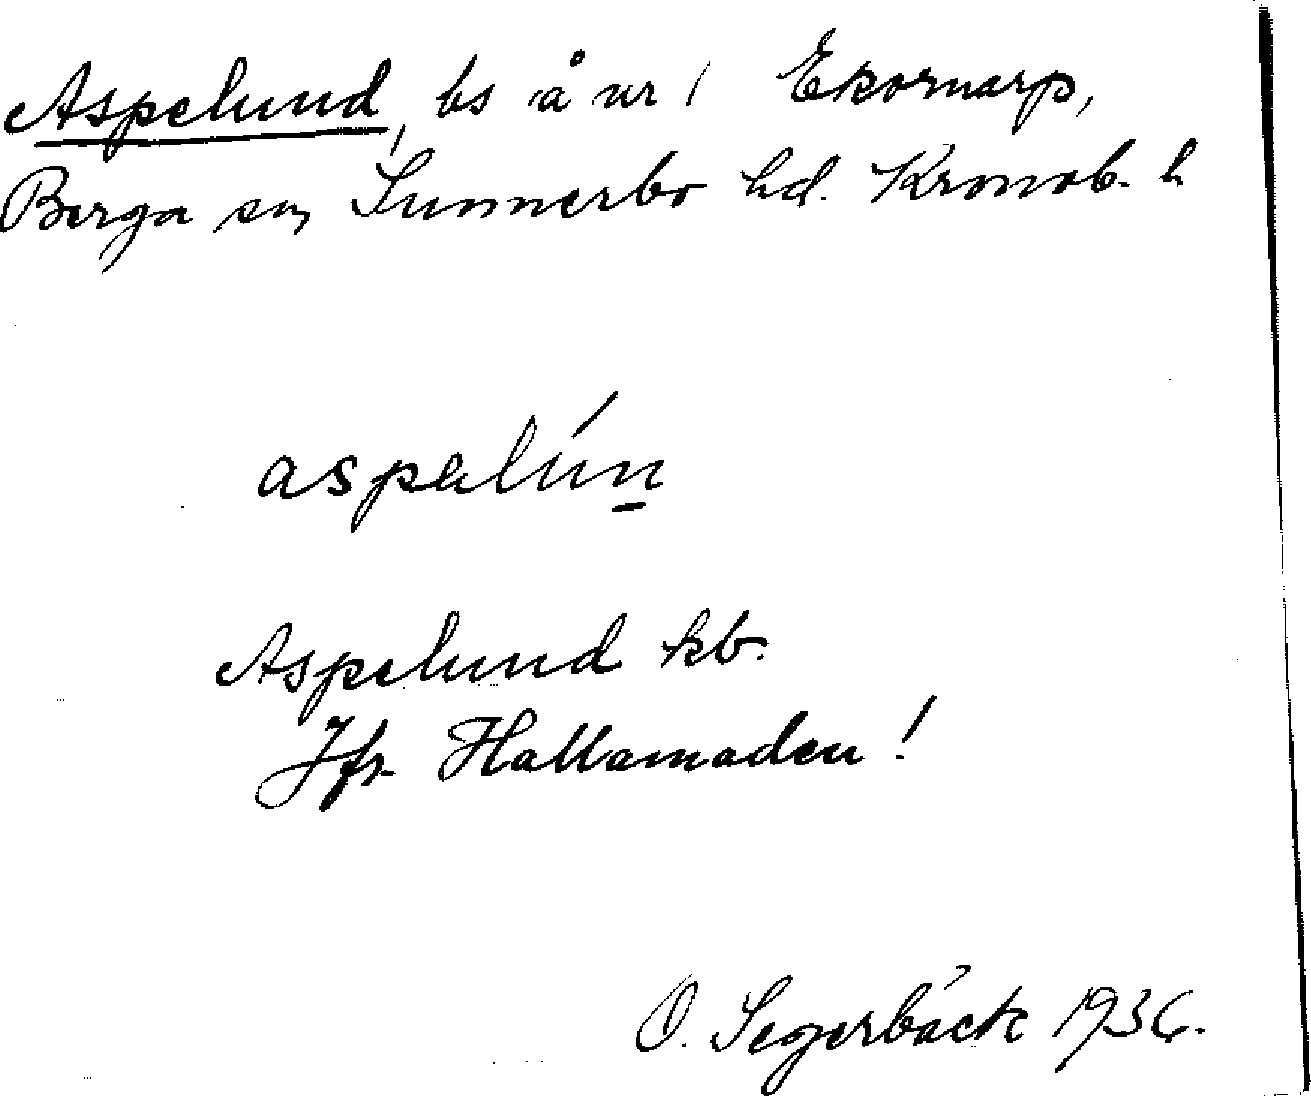 Aspelund, bs å nr 1 Ekornarp,
Berga sn, Sunnerbo hd. Kronob. l
aspəlún
Aspelund kb.
Jfr Hallamaden!
O. Segerbäck 1936.